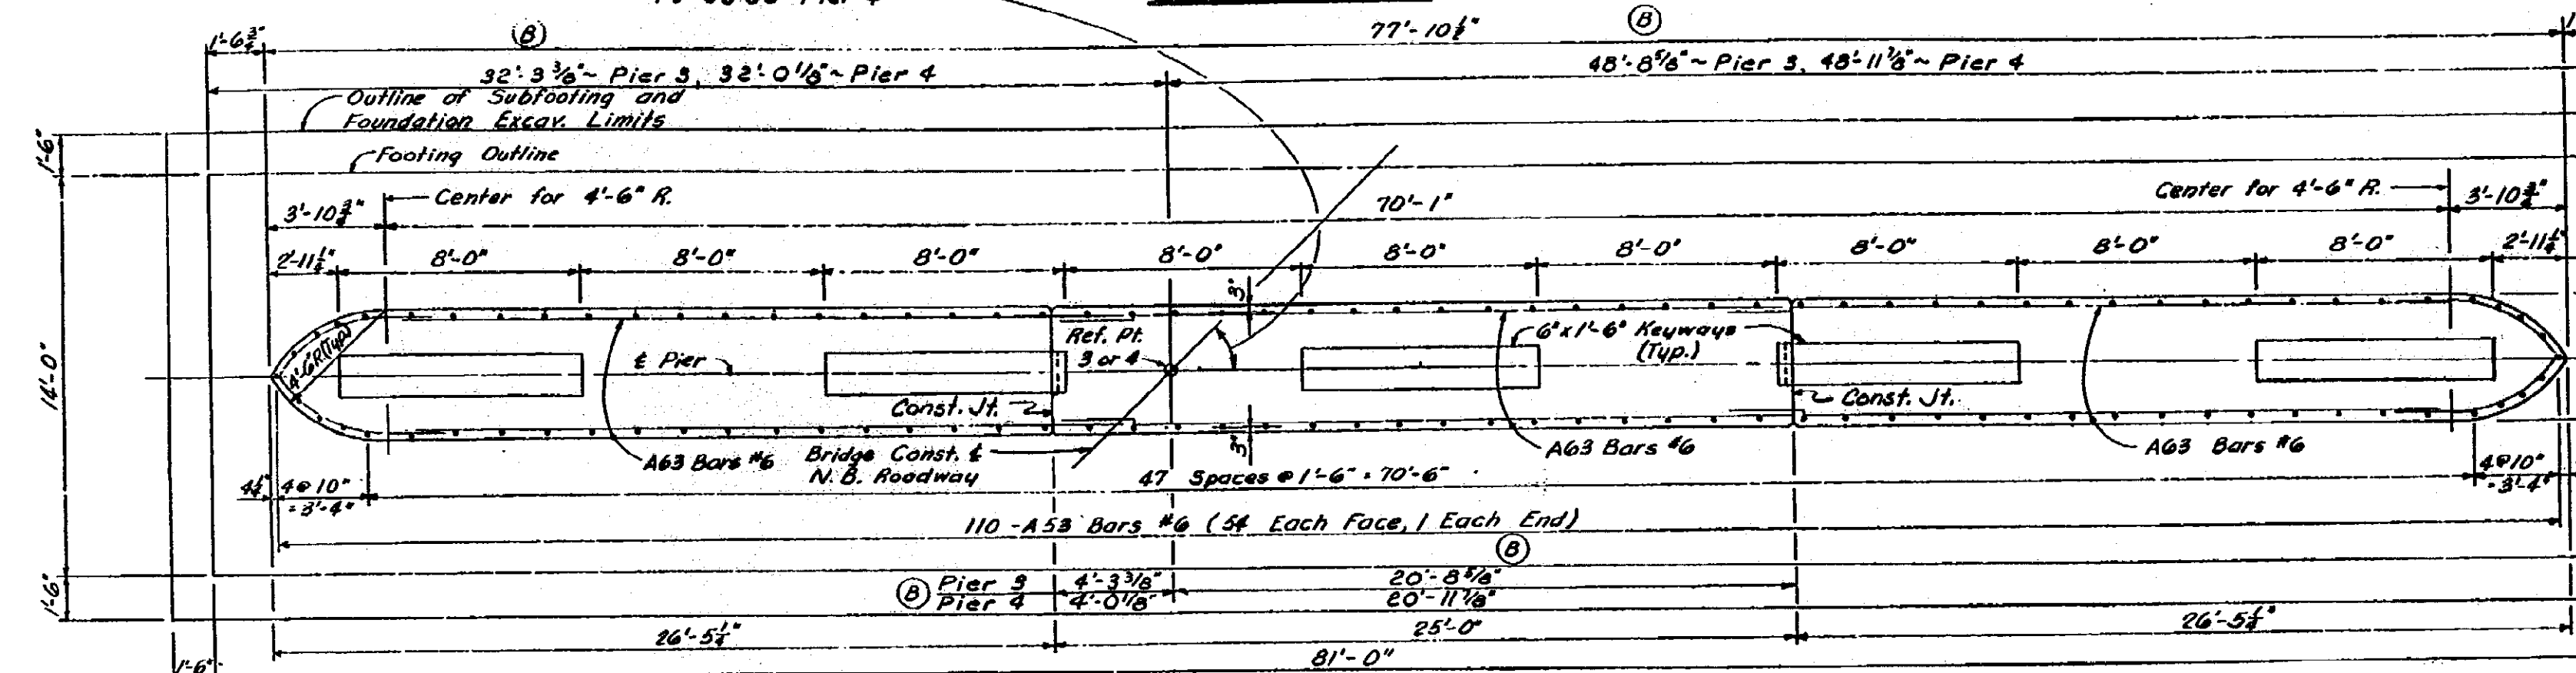 Pier 4
1'-6¾"
Ⓑ
77'-10½"
Ⓑ
32'-3⅜" ~ Pier 3, 32'-0⅛" ~ Pier 4
48'-8⅝" ~ Pier 3, 48'-11⅞" ~ Pier 4
Outline of Subfooting and
Foundation Excav. Limits
1'-6"
Footing Outline
Center for 4'-6" R.
Center for 4'-6" R.
3'-10¾"
70'-1"
3'-10¾"
2'-11¼"
8'-0"
8'-0"
8'-0"
8'-0"
8'-0"
8'-0"
8'-0"
8'-0"
8'-0"
2'-11¼"
3"
4'-6"R.(Typ.)
℄ Pier
Ref. Pt.
3 or 4
6"x1'-6" Keyways
(Typ.)
14'-0"
Const. Jt.
Const. Jt.
3"
A63 Bars #6
Bridge Const. ℄
N.B. Roadway
A63 Bars #6
A63 Bars #6
4¼"
4@10"
=3'-4"
47 Spaces @ 1'-6" = 70'-6"
4@10"
=3'-4"
110 - A53 Bars #6 (54 Each Face, 1 Each End)
Ⓑ
1'-6"
Ⓑ Pier 3 4'-3⅜" 20'-8⅝"
Pier 4 4'-0⅛" 20'-11⅞"
26'-5¼"
25'-0"
26'-5¼"
1'-6"
81'-0"